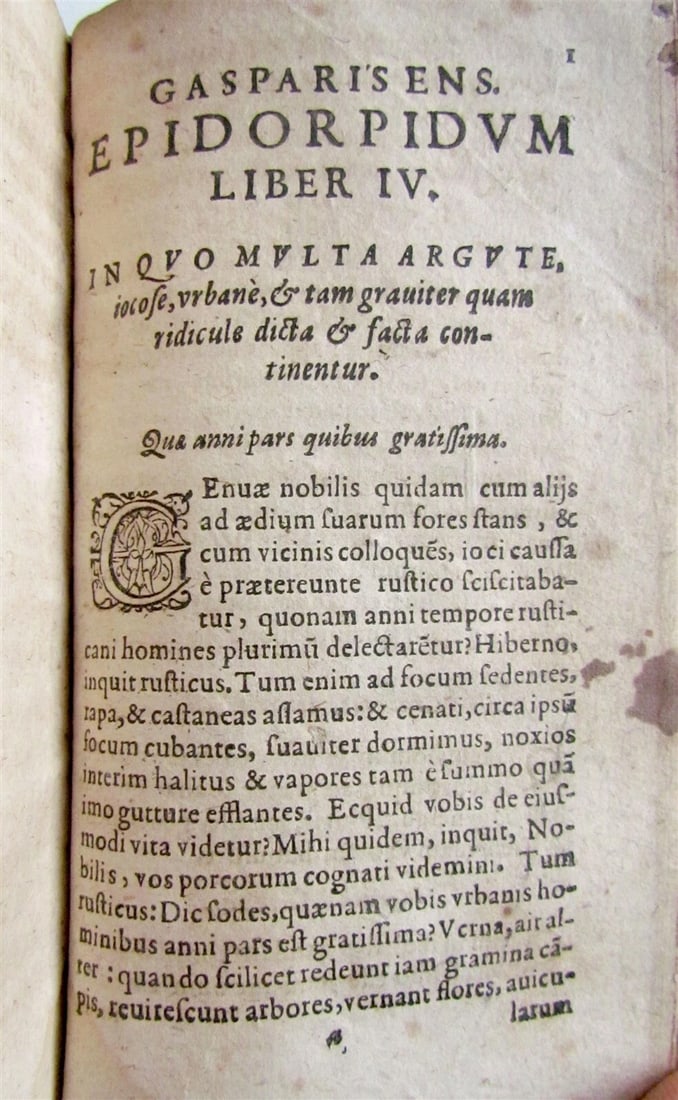 1
GASPARIS ENS.
EPIDORPIDVM
LIBER IV.
IN QVO MVLTA ARGVTE,
iocoſe, vrbanè, & tam grauiter quam
ridicule dicta & facta con-
tinentur.
Quæ anni pars quibus gratiſſima.
GEnuæ nobilis quidam cum alijs
ad ædium ſuarum fores ſtans , &
cum vicinis colloquẽs, ioci cauſſa
è prætereunte ruſtico ſciſcitaba-
tur, quonam anni tempore ruſti-
cani homines plurimũ delectarẽtur? Hiberno,
inquit ruſticus. Tum enim ad focum ſedentes,
rapa, & caſtaneas aſſamus: & cenati, circa ipsũ
focum cubantes, ſuauiter dormimus, noxios
interim halitus & vapores tam è ſummo quã
imo gutture efflantes. Ecquid vobis de eiuſ-
modi vita videtur? Mihi quidem, inquit, No-
bilis, vos porcorum cognati videmini. Tum
ruſticus: Dic ſodes, quænam vobis vrbanis ho-
minibus anni pars eſt gratiſſima? Verna, ait al-
ter : quando ſcilicet redeunt iam gramina cã-
pis, reuireſcunt arbores, vernant flores, auicu-
larum